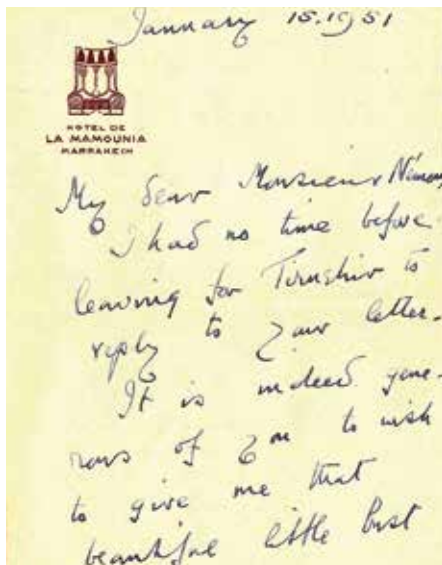 January 15. 1951
HOTEL DE
LA MAMOUNIA
MARRAKECH
My dear Monsieur Némon,
I had no time before
leaving for Tinerhir to
reply to your letter.
It is indeed gene-
rous of you to wish
to give me that
beautiful little bust